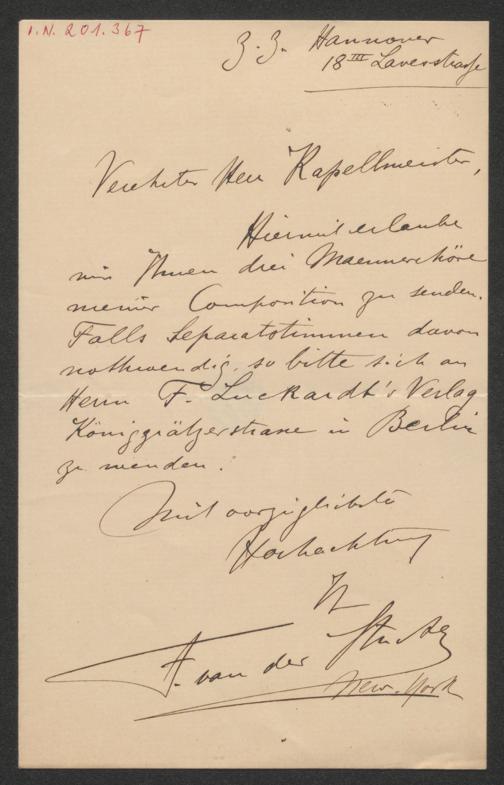 I.N. 201.367
z. Z. Hannover
18 III Lavesstrasse
Verehrter Herr Kapellmeister,
Hiermit erlaube
mir Ihnen drei Maennerchöre
meiner Composition zu senden.
Falls Separatstimmen davon
nothwendig, so bitte sich an
Herrn F. Luckardt's Verlag
Königgrätzerstrasse in Berlin
zu wenden.
Mit vorzüglichster
Hochachtung
F. van der Stucken
New-York